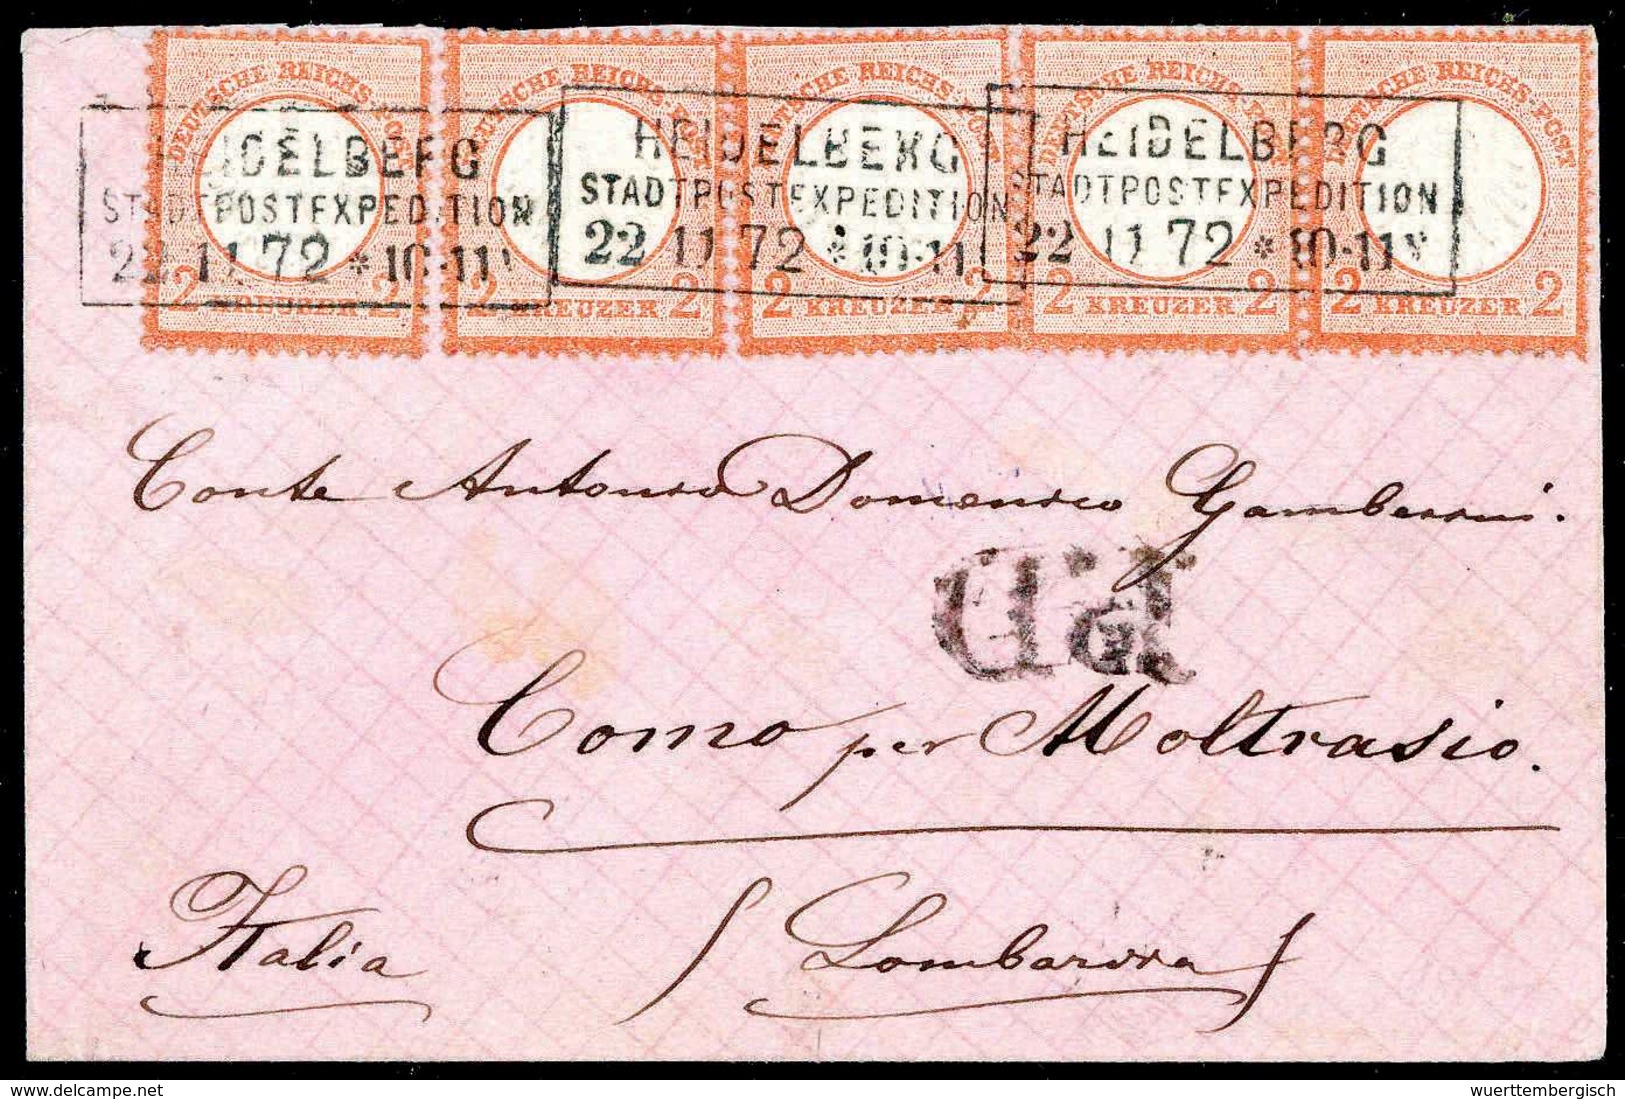 DEUTSCHE REICHS-POST DEUTSCHE REICHS-POST DEUTSCHE REICHS-POST DEUTSCHE REICHS-POST DEUTSCHE REICHS-POST
HEIDELBERG HEIDELBERG HEIDELBERG
STADTPOSTEXPEDITION STADTPOSTEXPEDITION STADTPOSTEXPEDITION
22 11 72 * 10-11V 22 11 72 * 10-11 22 11 72 * 10-11V
2 KREUZER 2 2 KREUZER 2 2 KREUZER 2 2 KREUZER 2 2 KREUZER 2
Conte Antonio Domenico Gamberini.
P.D.
Como per Moltrasio.
Italia (Lombardia)
delcampe.net
wuerttembergisch